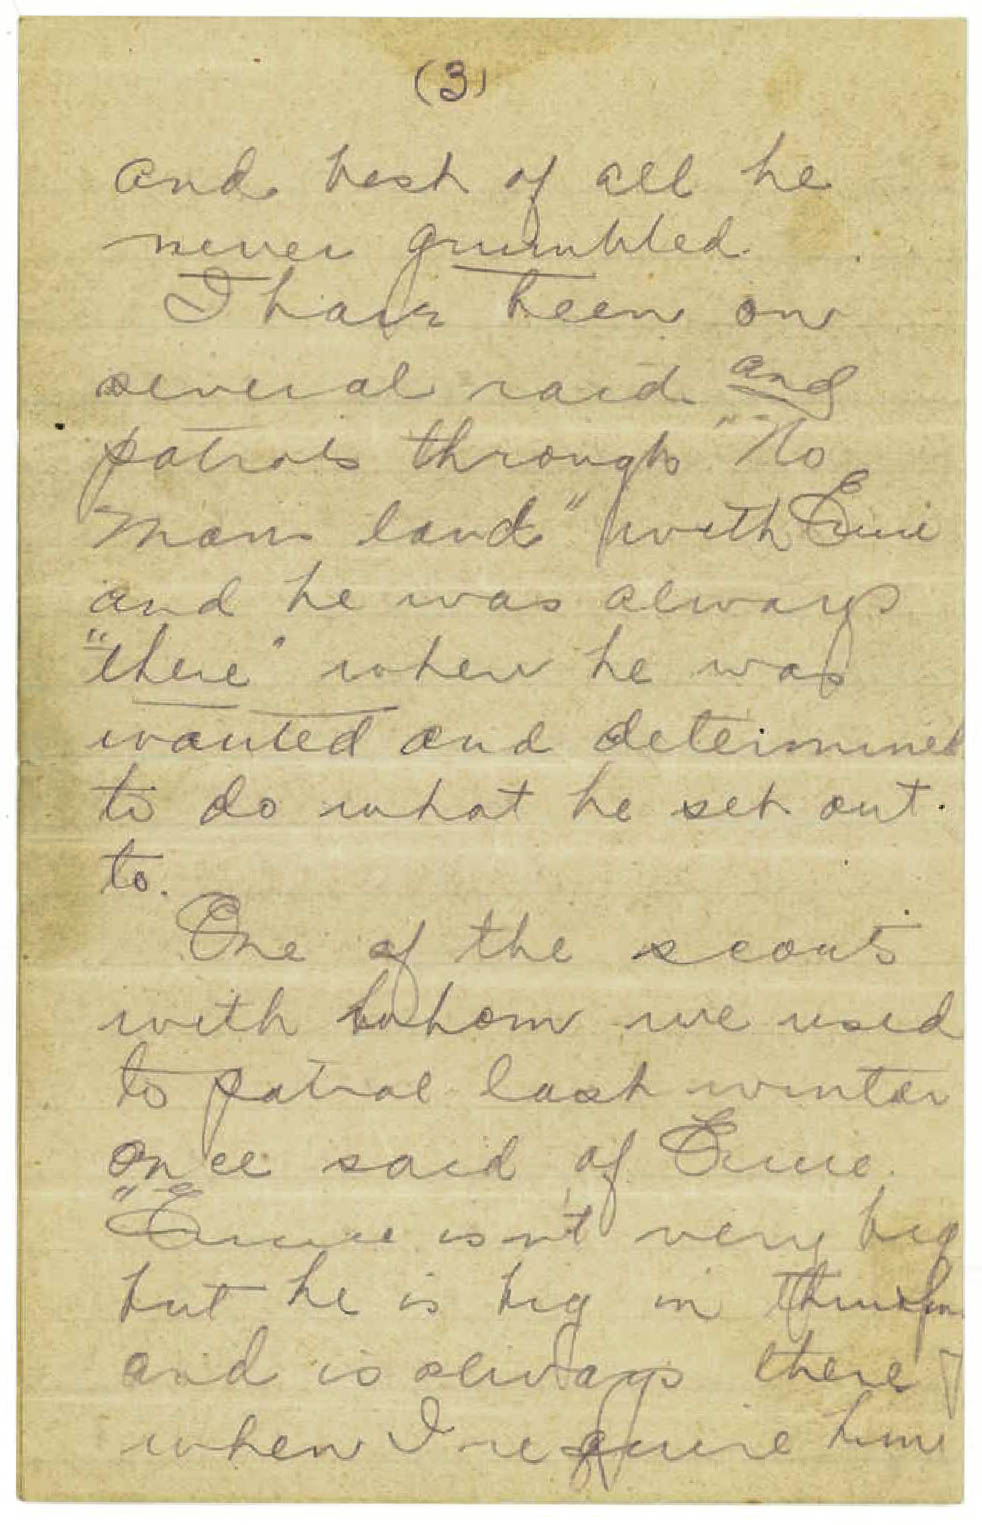 (3)
and best of all he
never grumbled.
I have been on
several raid and
patrols through "No
Mans land" with Ernie
and he was always
"there" when he was
wanted and determined
to do what he set out
to.
One of the scouts
with whom we used
to patrol last winter
once said of Ernie.
"Ernie isn't very big
but he is big in
and is always there
when I require him